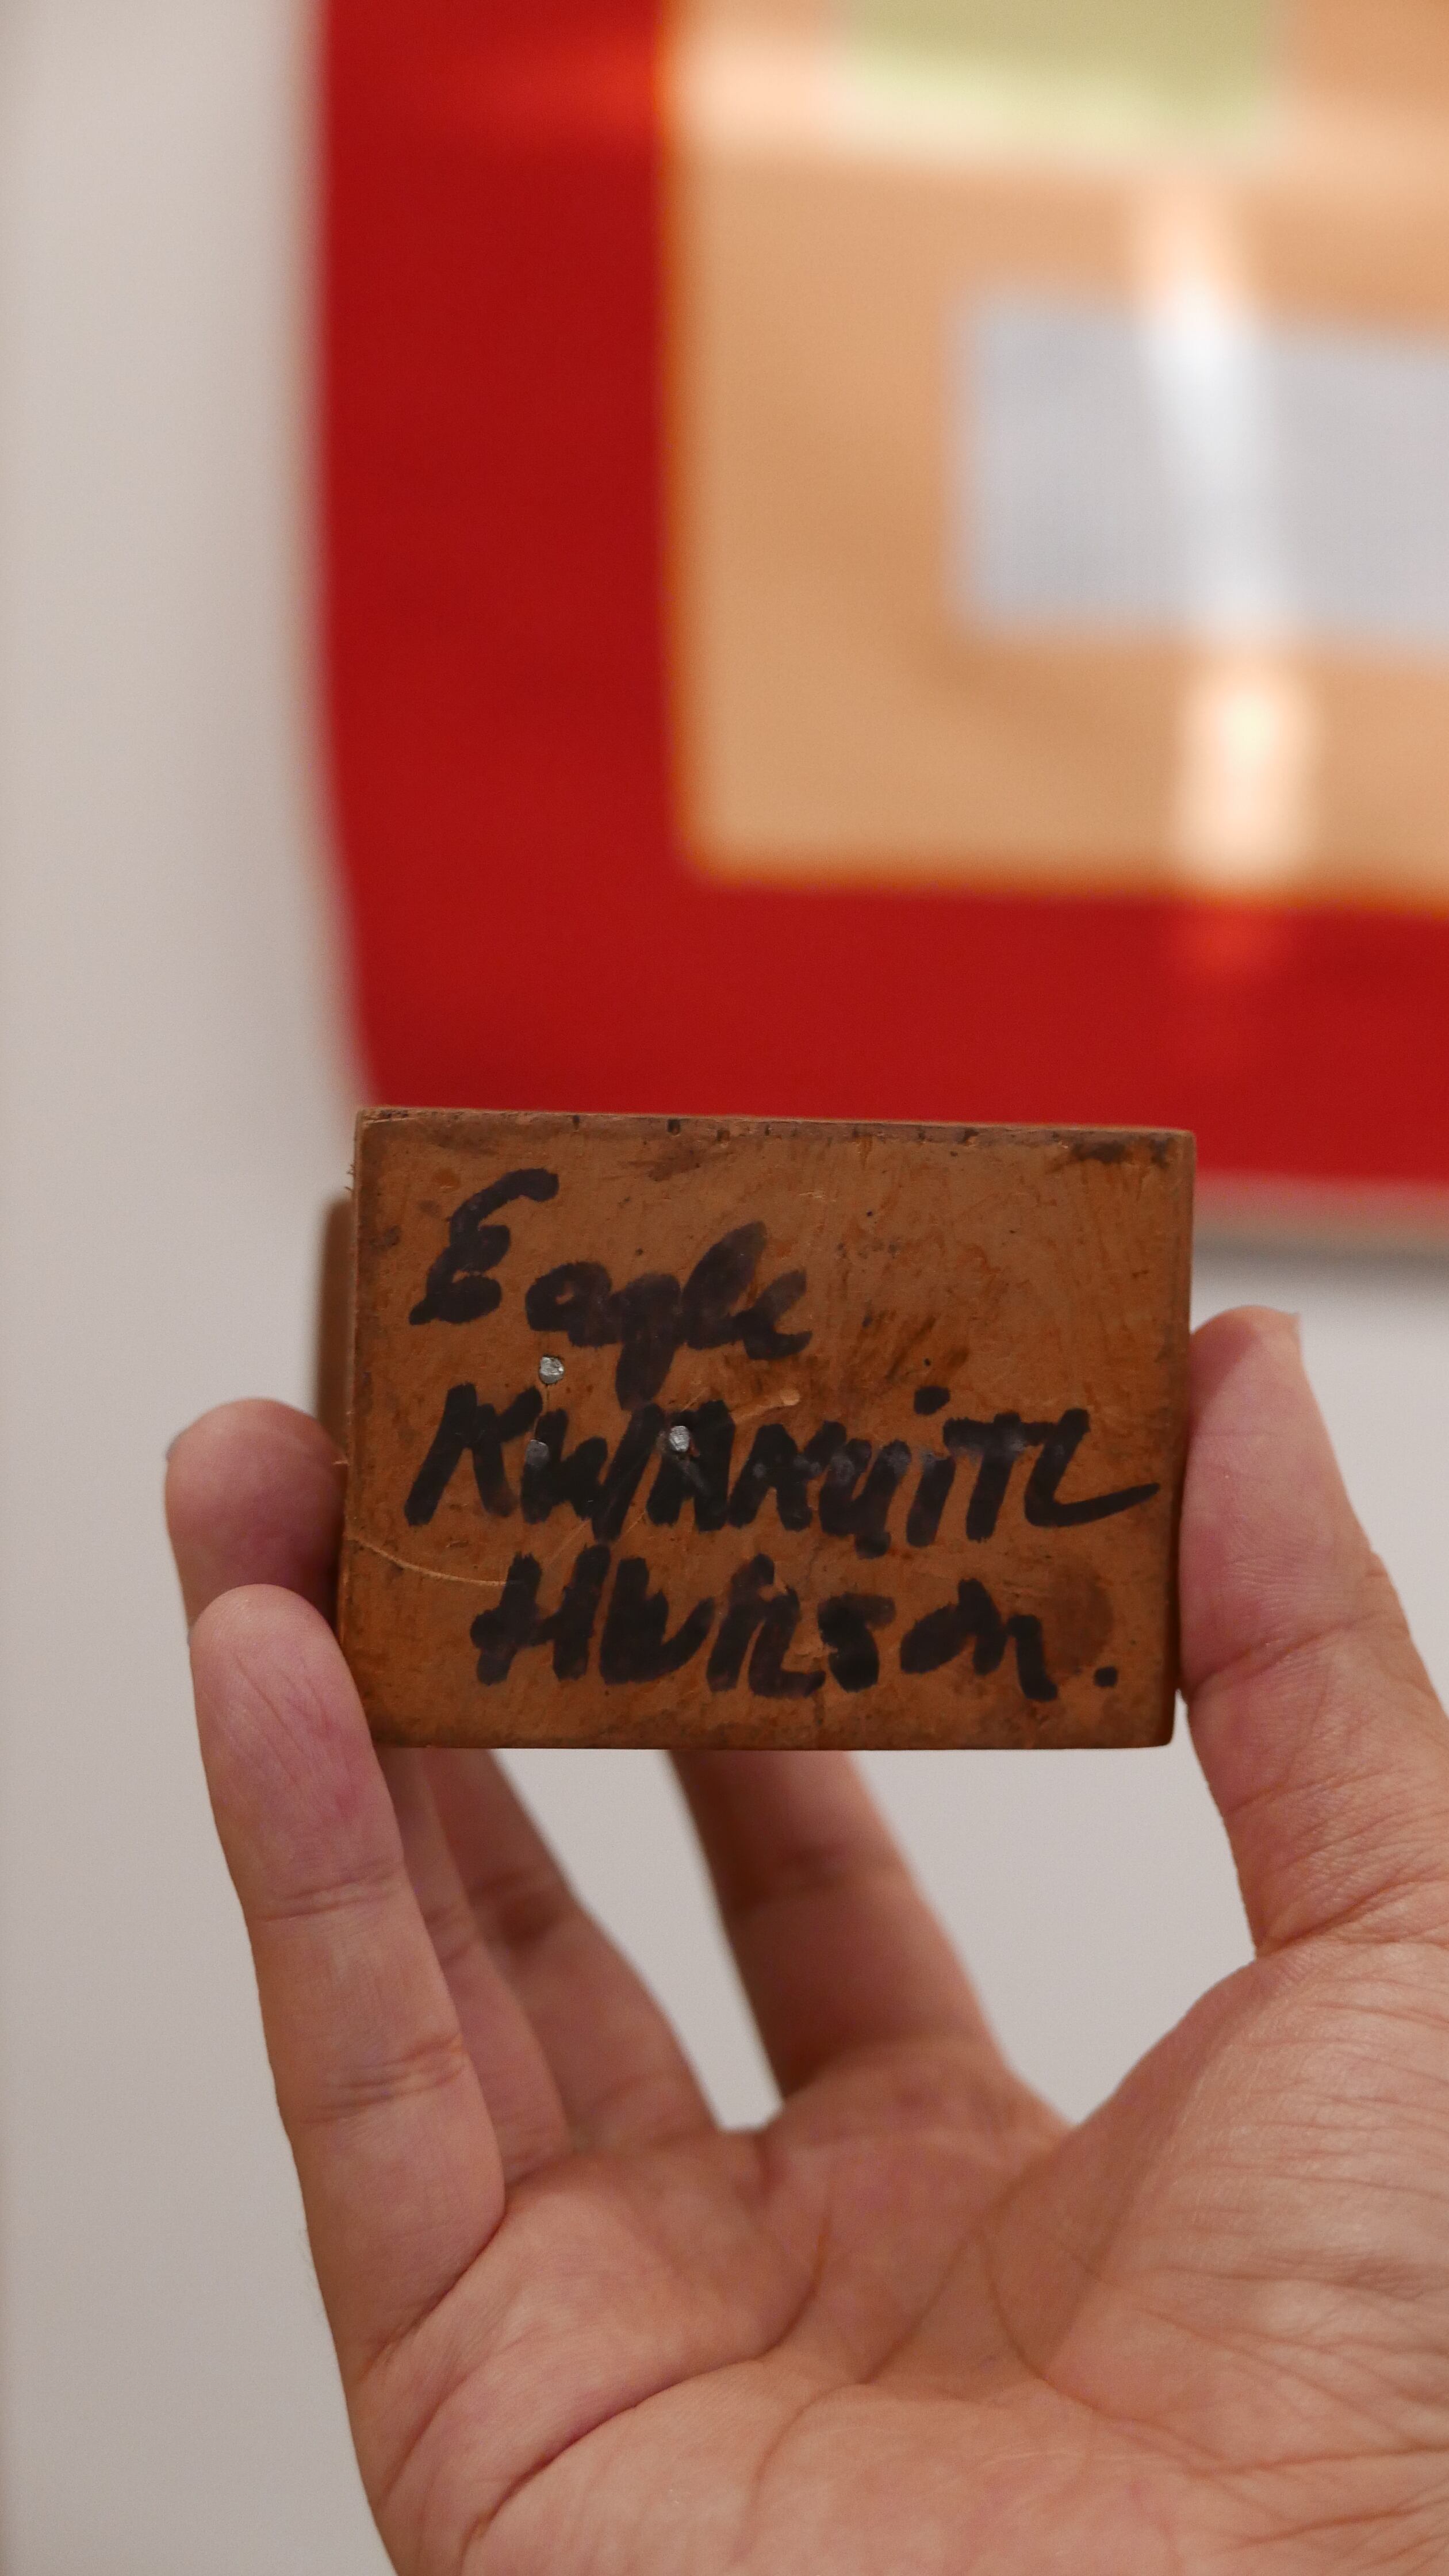 Eagle
KWAKUiTL
H WILSon.